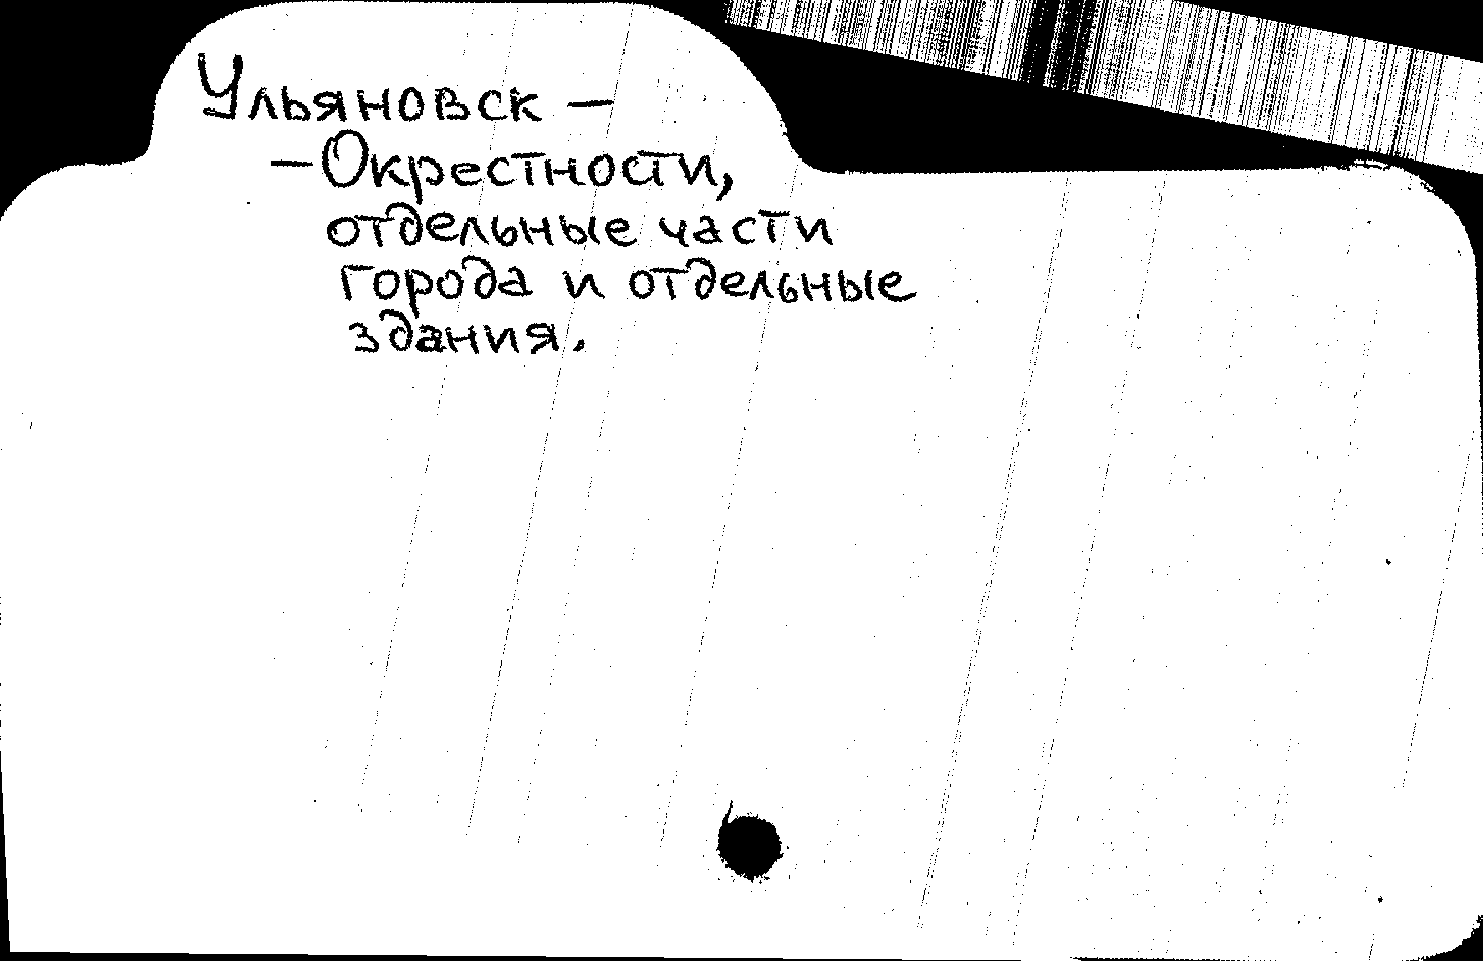 Ульяновск —
— Окрестности,
отдельные части
города и отдельные
здания.